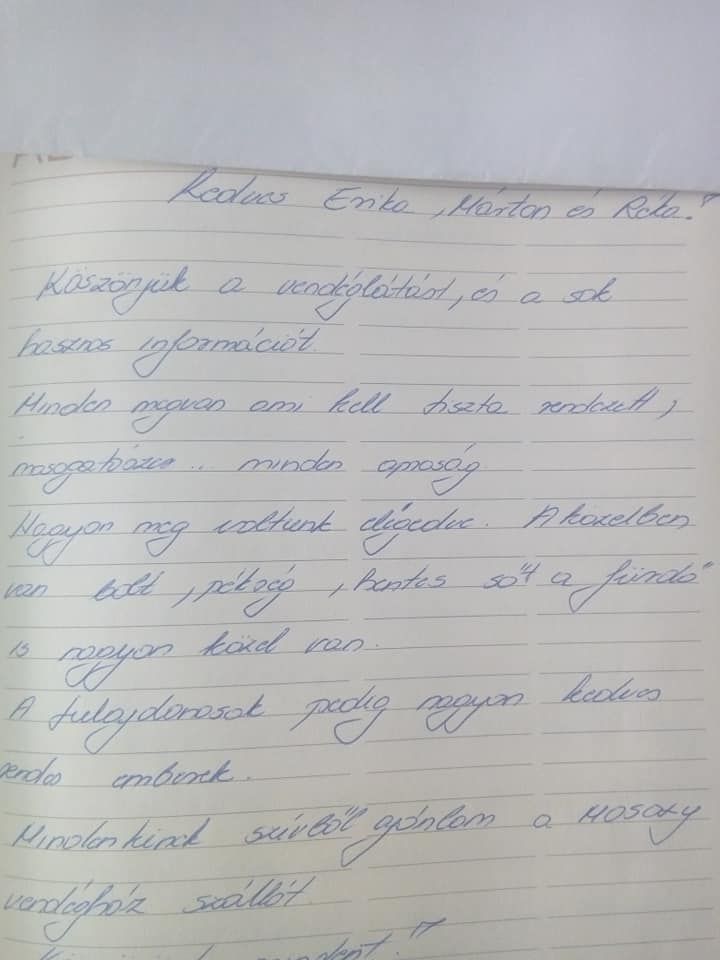 Kedves Erika, Márton és Réka!
Köszönjük a vendéglátást, és a sok
hasznos információt.
Minden megvan ami kell tiszta rendezett,
minden apróság
Nagyon meg voltunk elégedve. A közelben
van bolt, pékség, hentes sőt a fürdő
is nagyon közel van.
A tulajdonosok pedig nagyon kedves
rendes emberek.
Mindenkinek szívből ajánlom a
vendégház szállót.
mindent!